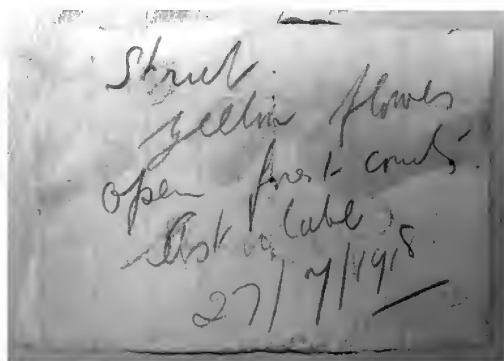 Shrub.
yellow flowers
open forest country
27/7/1918